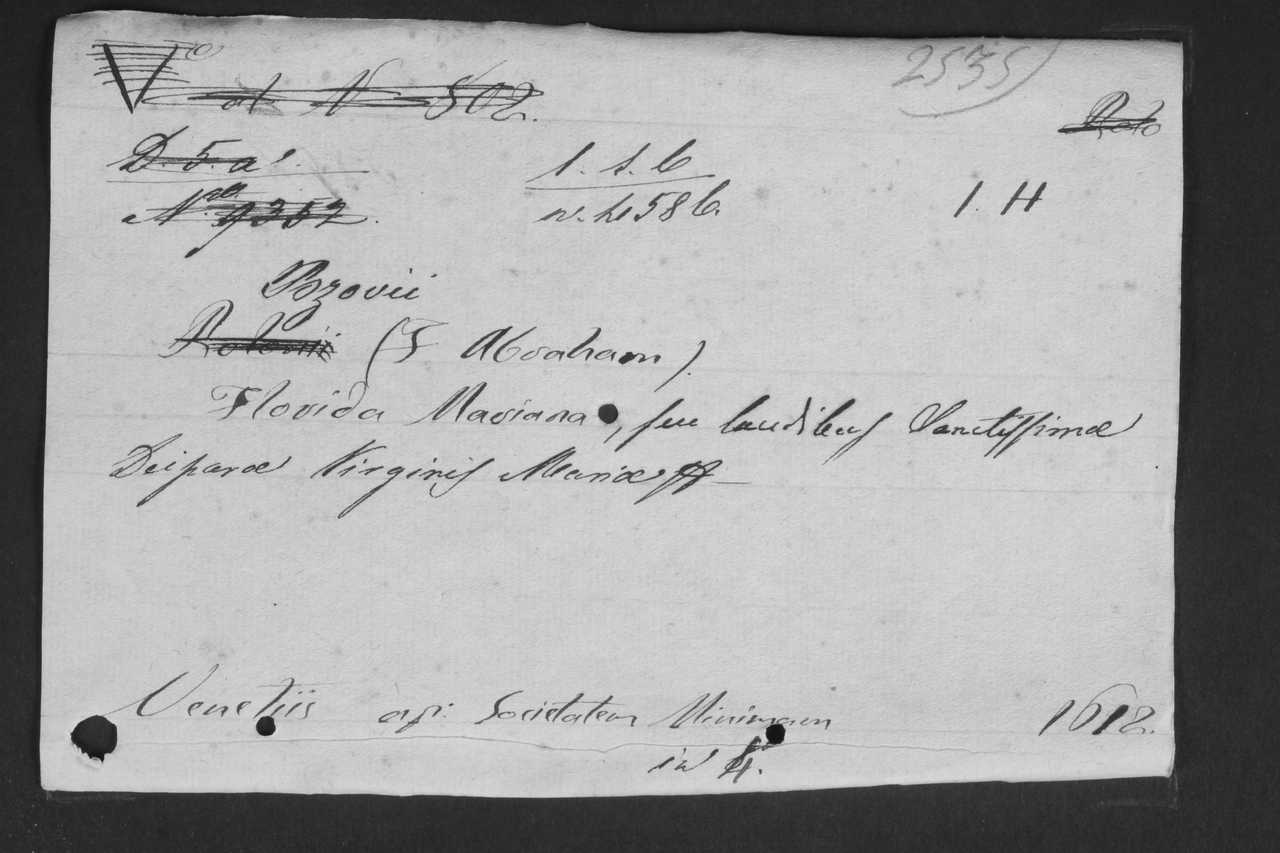 V° ad N 502. 2535
Roto
D. 5. a'. 1. s. b
N.ro 9257. n. 4586. 1. H
Bzovii
(F Abraham).
Florida Mariana, seu laudibus Sanctissimæ
Deiparæ Virginis Mariæ
Venetiis ap: Societatem Minimam 1612.
in 4.